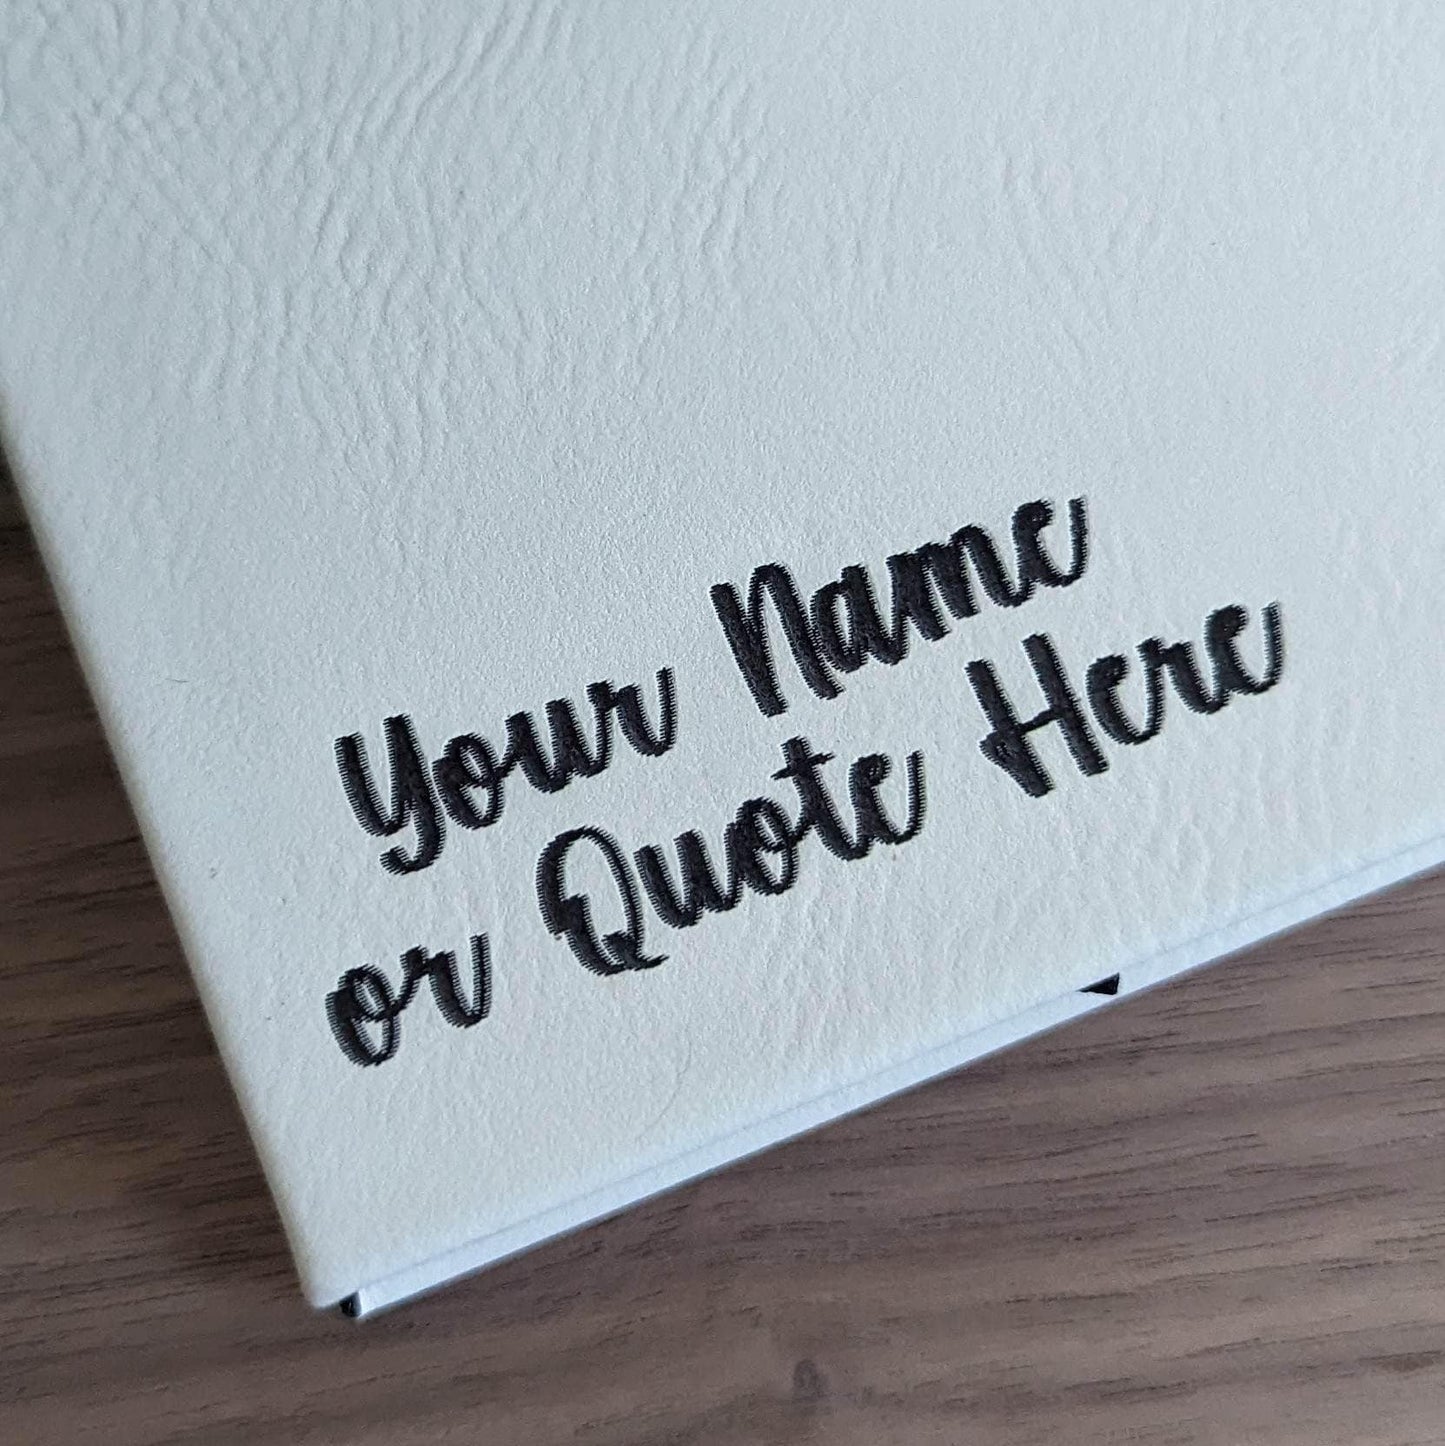 Your Name
or Quote Here